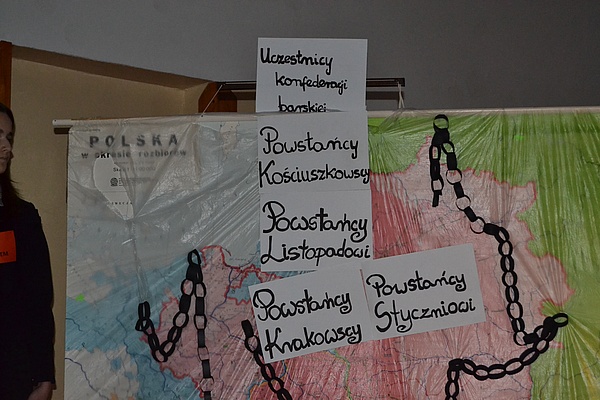 Uczestnicy
konfederacji
barskiej
POLSKA
w okresie rozbiorów
Powstańcy
Kościuszkowscy
Powstańcy
Listopadowi
Powstańcy
Krakowscy
Powstańcy
Styczniowi